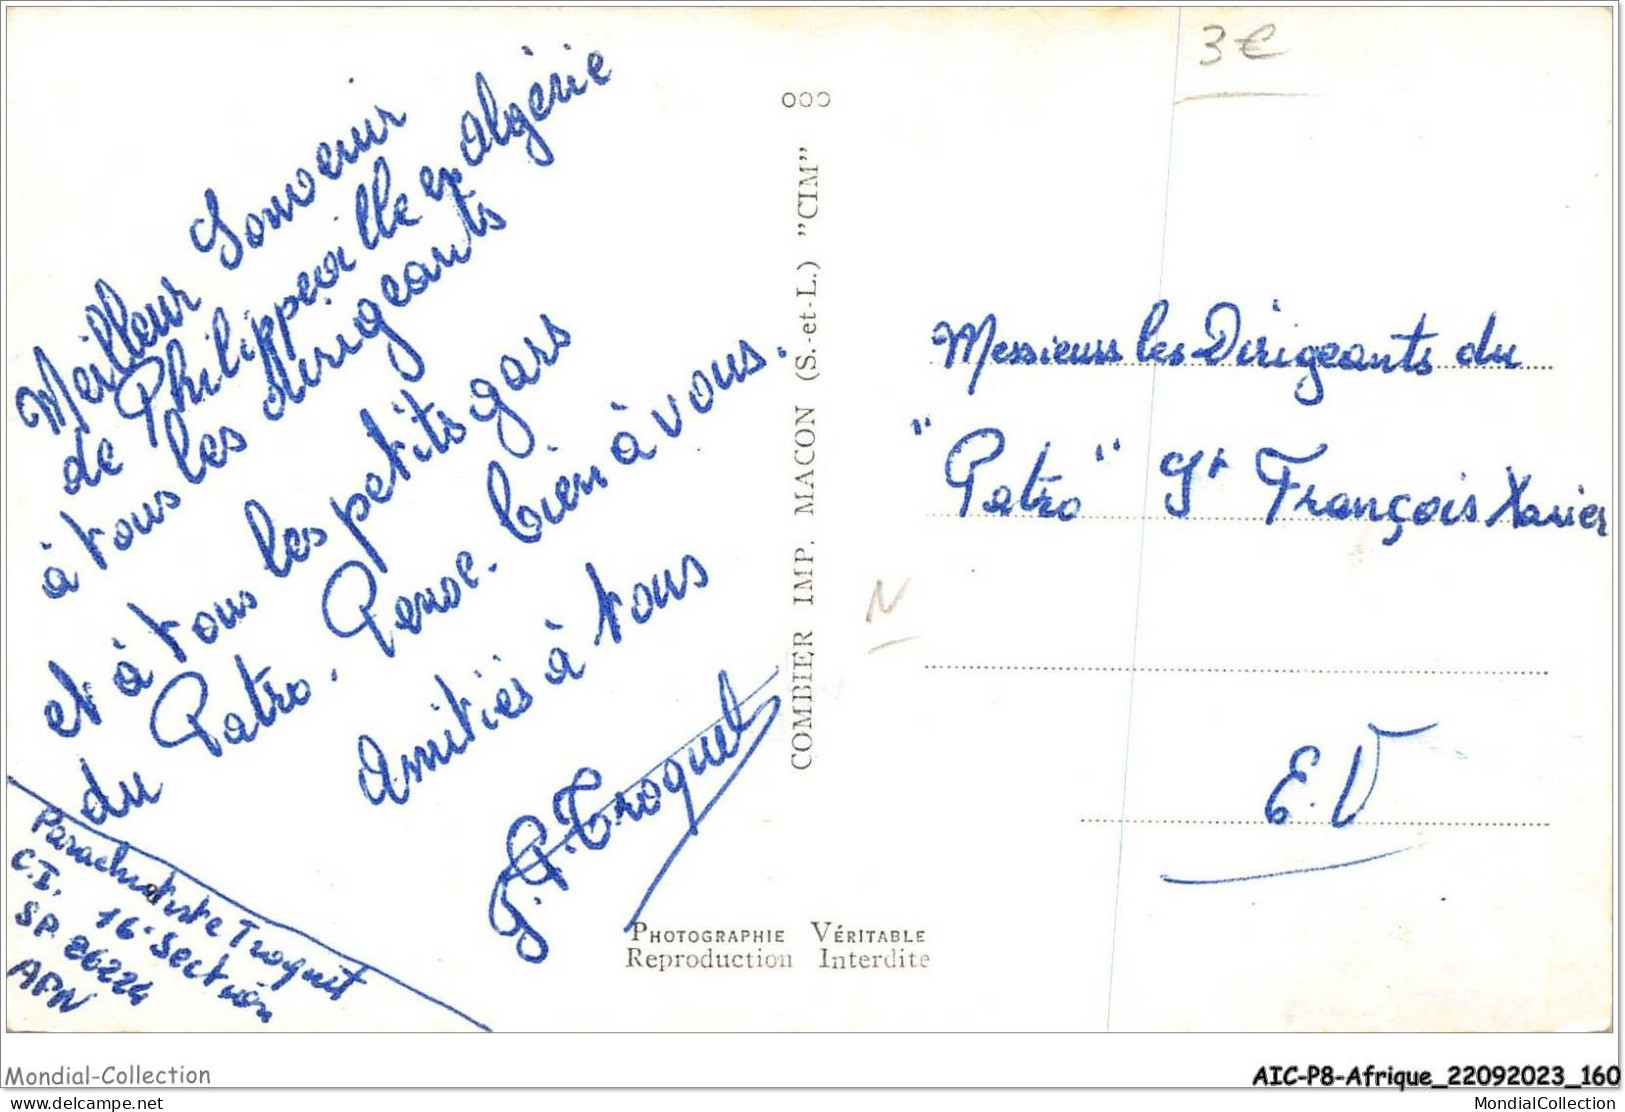 Meilleur Souvenir
de Philippeville en Algérie
à tous les dirigeants
et à tous les petits gars
du Patro. Penoc. bien à vous.
Amitiés à tous
Troquet
Parachutiste Troquet
C.I. 16e Section
SP. 86224
AFN
COMBIER IMP. MACON (S.-et-L.) "CIM"
PHOTOGRAPHIE VÉRITABLE
Reproduction Interdite
3€
Messieurs les Dirigeants du
"Patro" St François Xavier
N
E.V
Mondial-Collection
AIC-P8-Afrique_22092023_160
www.delcampe.net
MondialCollection